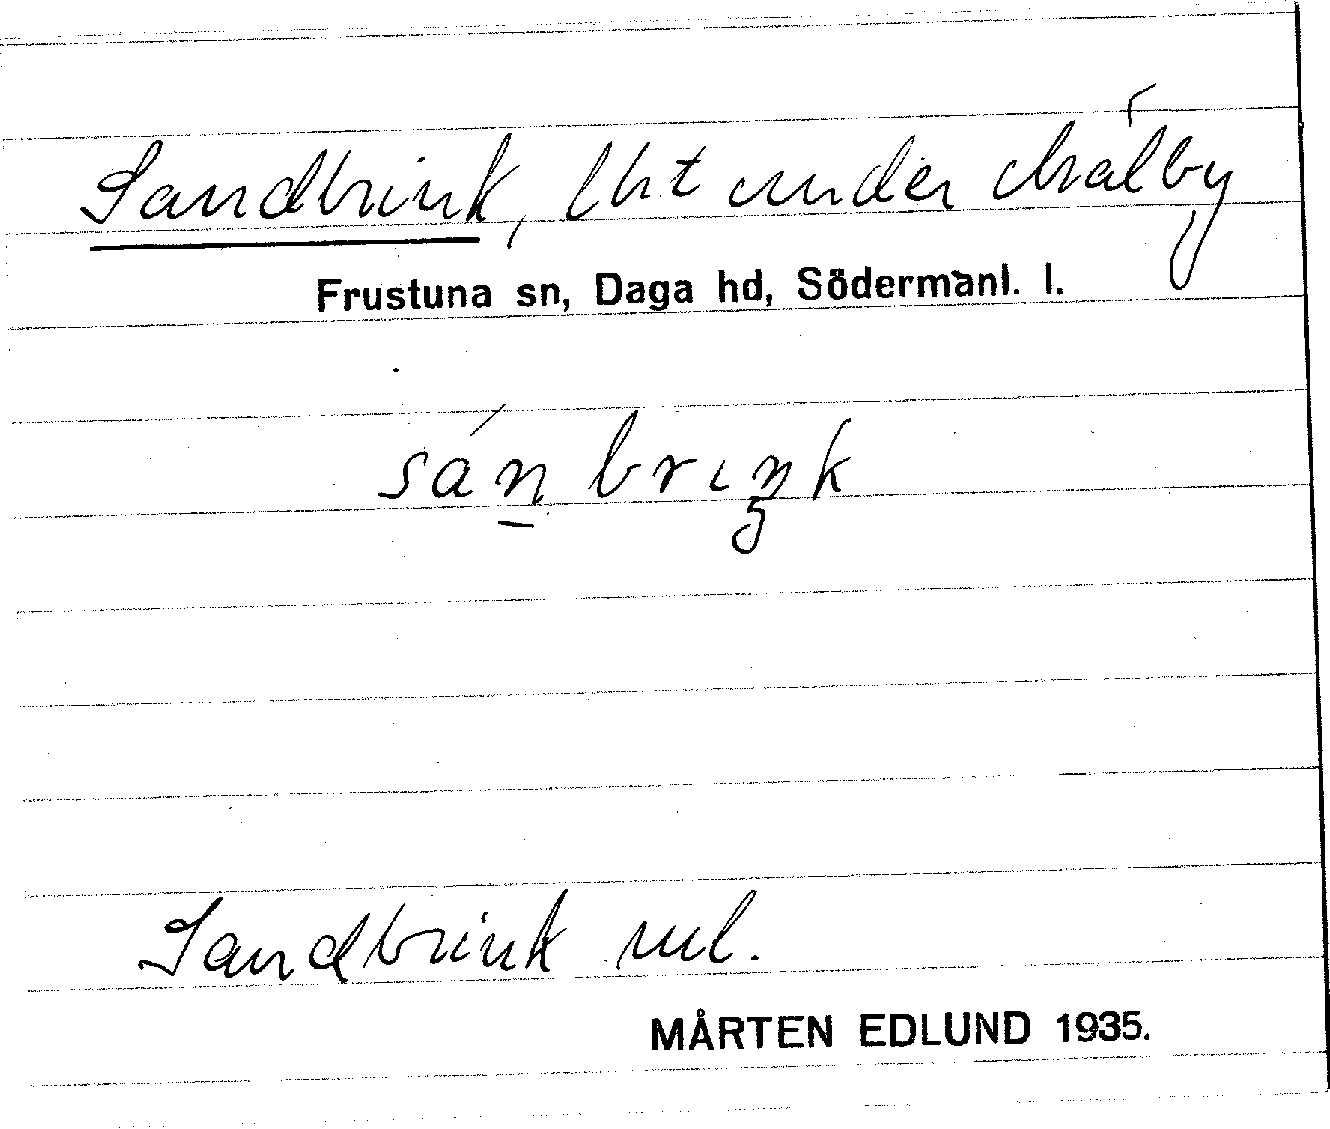 Sandbrink, lht under
Frustuna sn, Daga hd, Södermanl. l.
sán brıŋk
Sandbrink ml.
MÅRTEN EDLUND 1935.